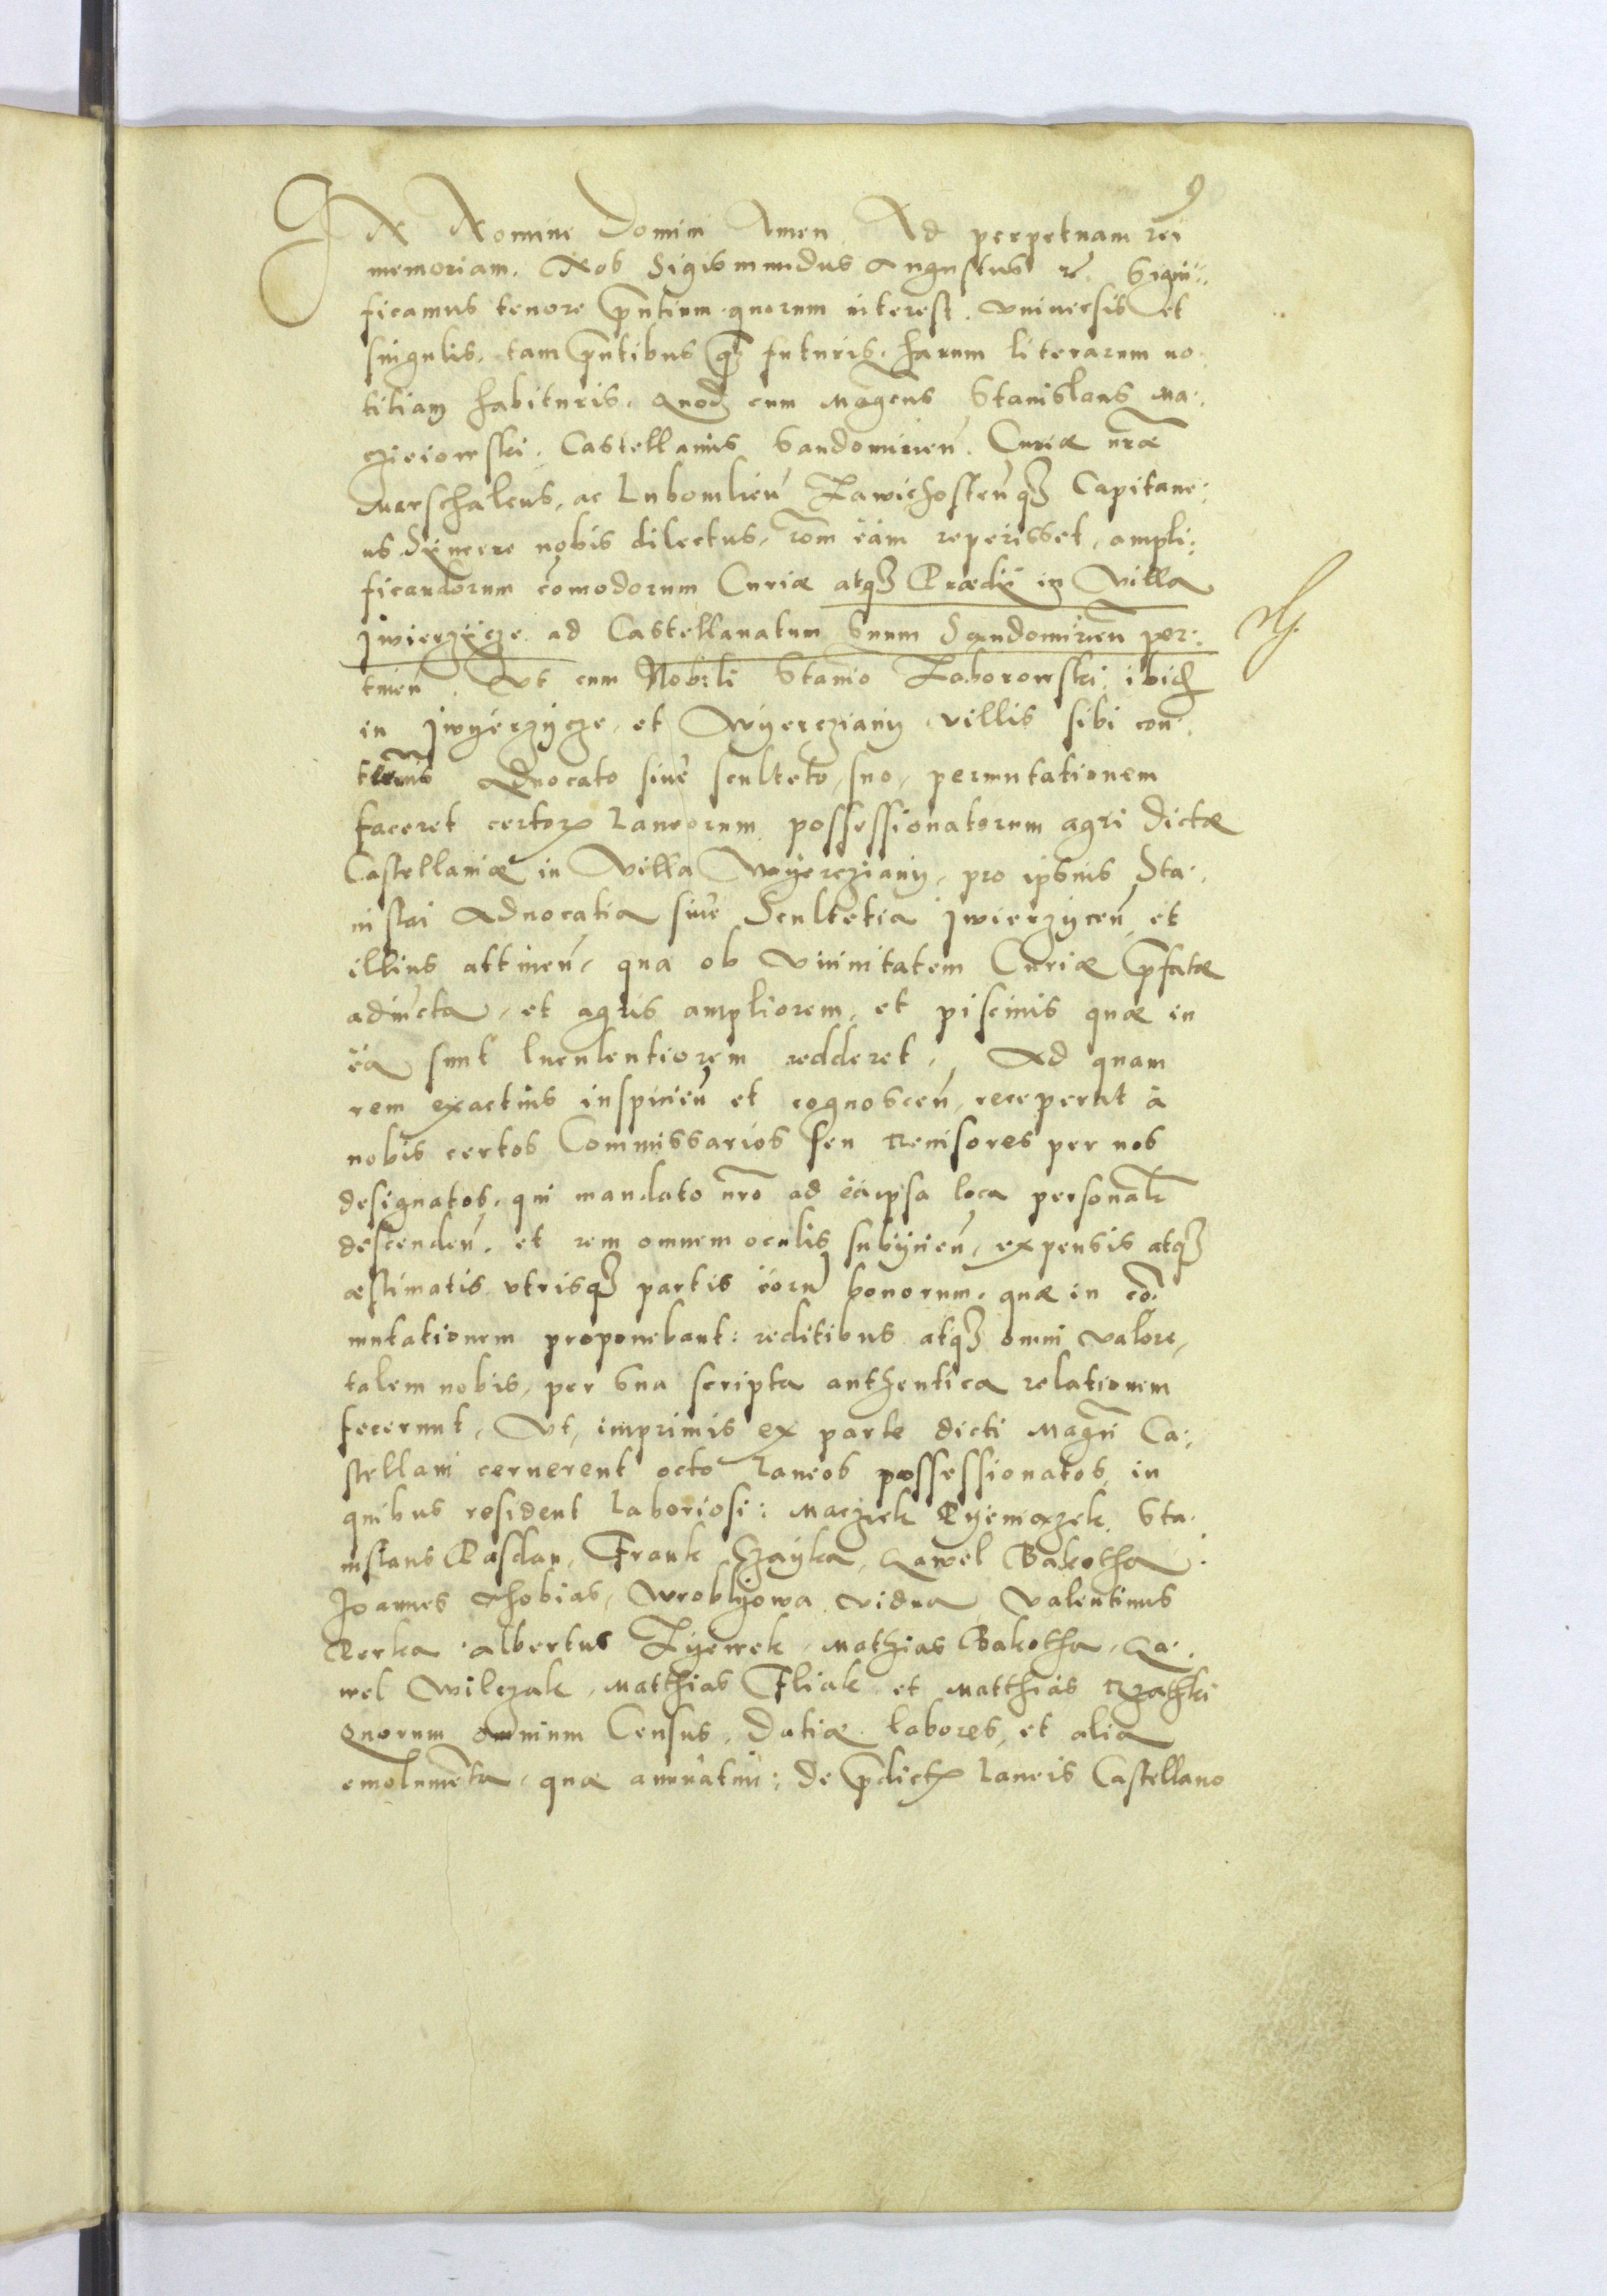 9
IN Nomine Domini Amen. Ad perpetuam rei
memoriam. Nos Sigismundus Augustus rc. Signi:
ficamus tenore pn̄tium quorum interest. vniuersis et
singulis, tam pn̄tibus q̄ȝ futuris, harum literarum no
titiam habituris. Quod cum Magcus Stanislaus Ma:
cieiowski, Castellanus Sandomirien̄. Curiæ nr̄æ
Marschalcus, ac Lubomlien̄ Zawichosten̄qȝ Capitane:
us Syncere nobis dilectus, rōm eam reperisset, ampli:
ficandorum cōmodorum Curiæ atqȝ Prædij in Villa
Jwierzycze ad Castellanatum Suum Sandomirien̄ per:
tinen̄. Vt cum Nobili Stanio Zaborowski, ibid
in Jwyerzycze, et Wyercziany villis sibi con:
Aduocato siue sculteto, suo, permutationem
faceret certoꝝ Laneorum possessionatorum agri dictæ
Castellaniæ in Villa Wyercziany, pro ipsius Sta:
nislai Aduocatia siue Scultetia Jwierzycen̄ et
illius attinen̄, qua ob vicinitatem Curiæ p̄fatæ
adiuncta, et agris ampliorem, et piscinis quæ in
ea sunt luculentiorem redderet, Ad quam
rem exactius inspicien̄ et cognoscen̄, receperat à
nobis certos Commissarios seu Reuisores per nos
designatos, qui mandato nr̄o ad eaipsa loca personalr
descenden̄. et rem omnem oculis subijcien̄, expensis atqȝ
æstimatis vtrisqȝ partis eorū bonorum, quæ in cō:
mutationem proponebant: reditibus atqȝ omni valore,
talem nobis, per sua scripta authentica relationem
fecerunt, Vt, imprimis ex parte dicti Magci Ca:
stellani cernerent octo Laneos possessionatos in
quibus resident Laboriosi: Macziek Pyeniazek, Sta
nislaus Pasdan, Frank Czayka, Gawel Bakotha
Joannes Thobias, Wroblyowa vidua, Valentinus
Perka, Albertus Zyewek, Mathias Bakotha, Ga:
wel Wilczak, Matthias Fliak et Matthias
Quorum omnium Census, Datiæ, labores, et alia
emolumēta, quæ annuatim: de p̄dictꝭ Laneis Castellano